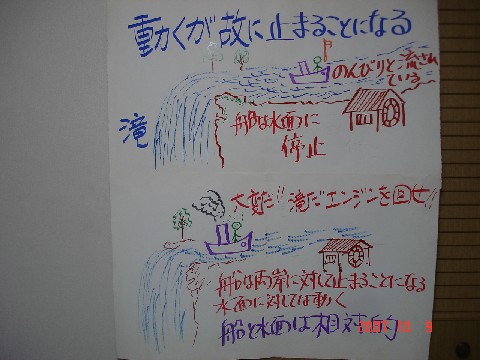 動くが故に止まることになる
のんびりと流され
ている
滝
船は水面に
停止
大変だ!! 滝だエンジンを回せ!!
船は両岸に対して止まることになる
水面に対しては動く
船と水面は相対的